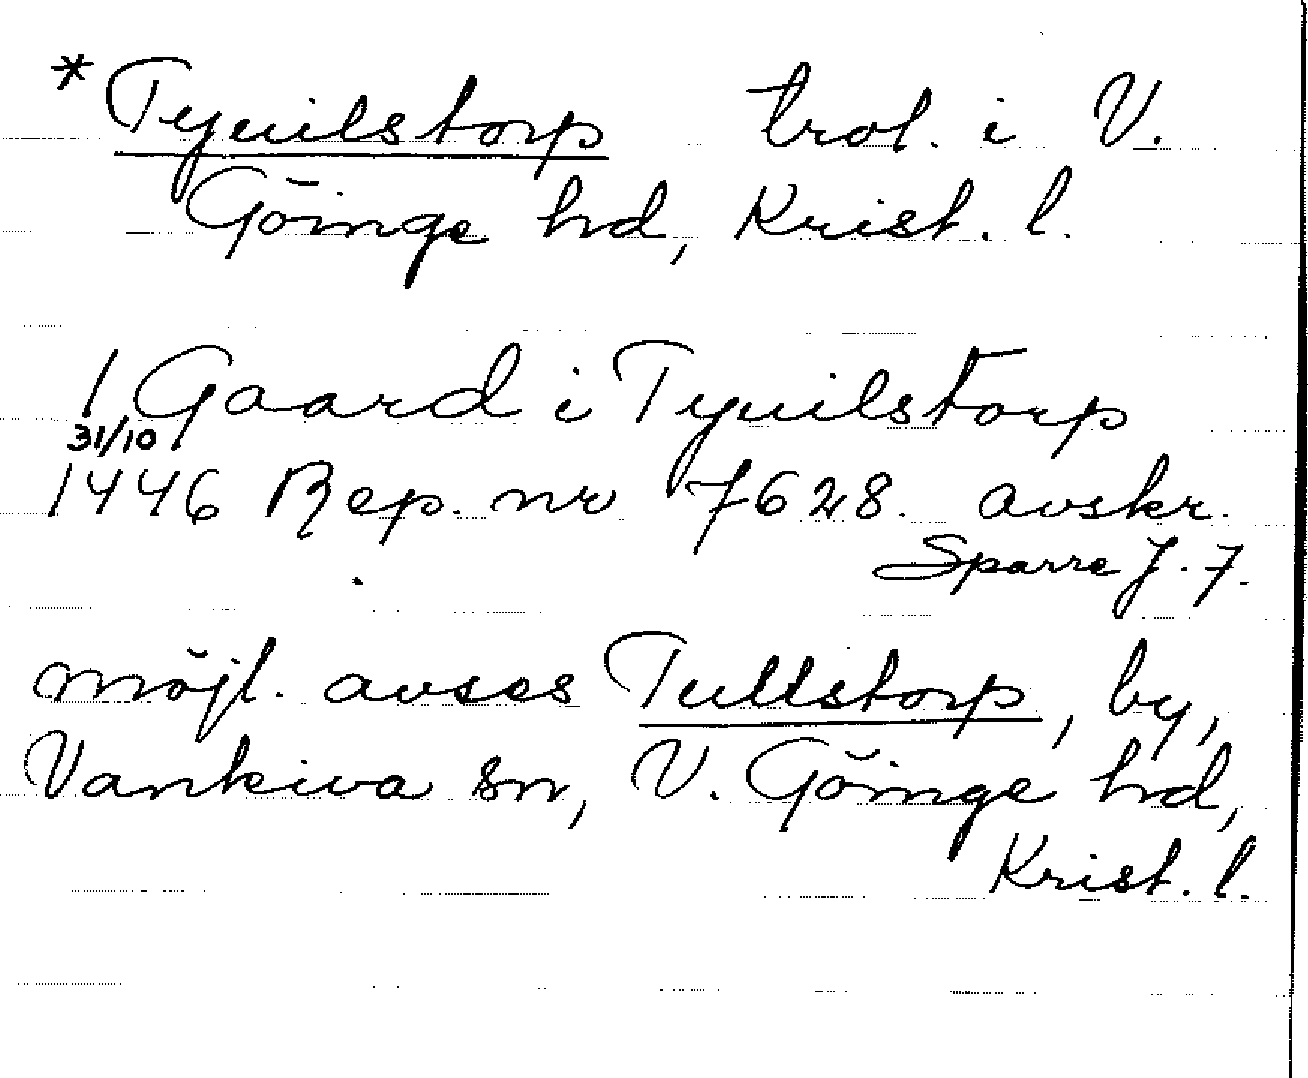 * Tyuilstorp trol. i V.
Göinge hd, Krist. l.
1 Gaard i Tyuilstorp
31/10
1446 Rep. nr 7628. avskr.
Sparre J. 7.
möjl. avses Tullstorp, by,
Vankiva sn, V. Göinge hd,
Krist. l.